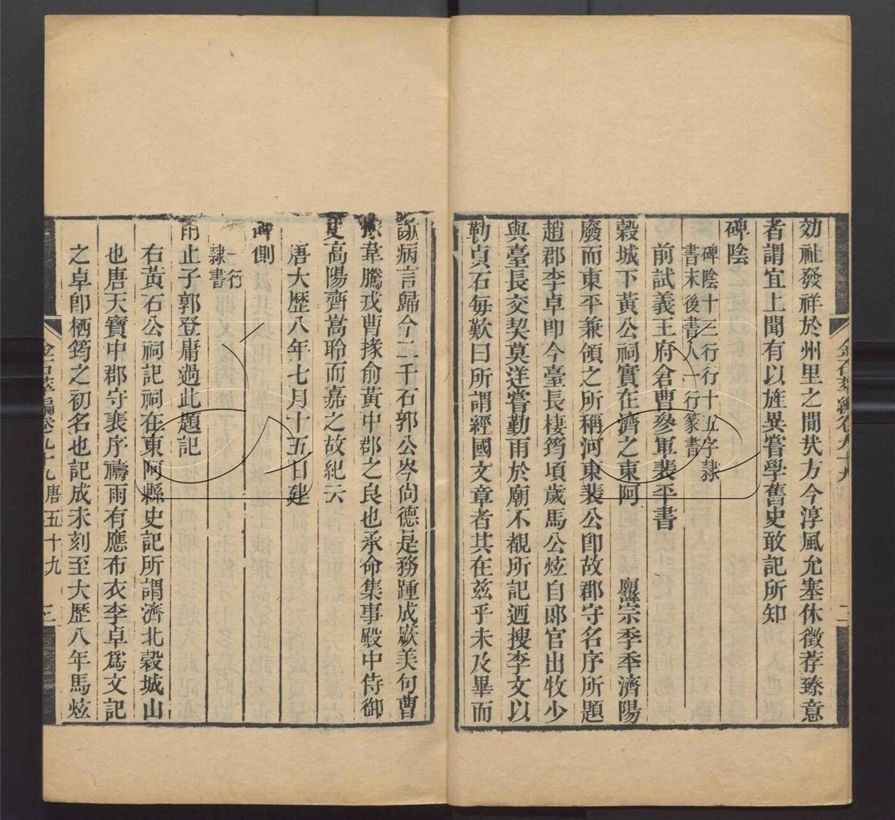 効祉發祥於州里之間牀方今淳風允塞休徵荐臻意
者謂宜上聞有以旌異嘗學舊史敢記所知
碑陰
碑陰十三行行十五字隸
書末後書人一行篆書
前試義王府倉曹叅軍裴平書
糓城下黃公祠實在濟之東阿 宗季年濟陽
廢而東平兼領之所稱河東裴公卽故郡守名序所題
趙郡李卓卽今臺長棲筠項歲馬公炫自郞官出牧少
與臺長交契莫逆嘗勤雨於廟不覩所記迺搜李文以
勒貞石每歎曰所謂經國文章者其在兹乎未及畢而
病言歸今二千石郭公岑尙德是務踵成厥美句曹
掾韋騰戎曹掾俞黃中郡之良也承命集事殿中侍御
史高陽齊嵩聆而嘉之故紀云
唐大歷八年七月十五日建
碑側
一行
隷書
甪止子郭登庸過此題記
右黃石公祠記祠在東阿縣史記所謂濟北糓城山
也唐天寶中郡守裴序禱雨有應布衣李卓爲文記
之卓卽栖筠之初名也記成未刻至大歷八年馬炫
金石萃編卷九十九
二
金石萃編卷九十九 唐五十九
三